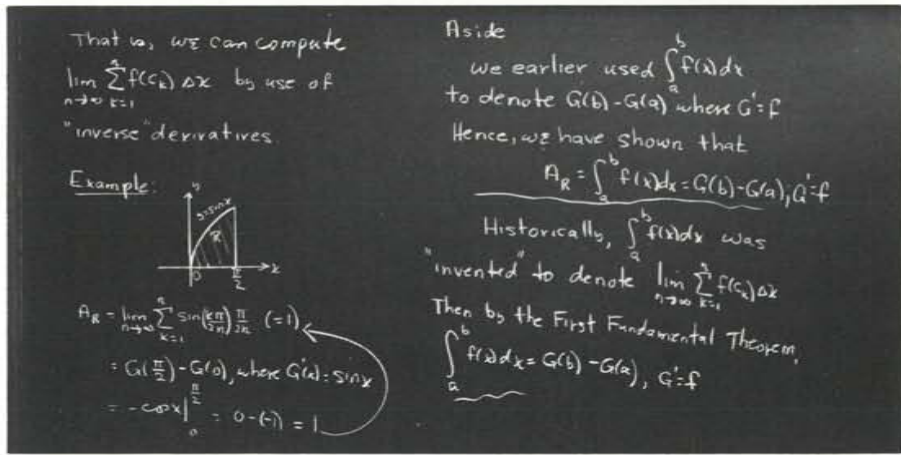 That is, we can compute
lim n→∞ ∑ k=1 n f(cₖ) Δx by use of
"inverse" derivatives.
Example:
y
y=sinx
R
0 π/2 x
A_R = lim n→∞ ∑ k=1 n sin(kπ/2n) π/2n (=1)
= G(π/2) - G(0), where G'(x) = sinx
= -cosx |₀^π/2 = 0-(-1) = 1
Aside
we earlier used ∫ₐᵇ f(x)dx
to denote G(b)-G(a) where G'=f
Hence, we have shown that
A_R = ∫ₐᵇ f(x)dx = G(b)-G(a), G'=f
Historically, ∫ₐᵇ f(x)dx was
"invented" to denote lim n→∞ ∑ k=1 n f(cₖ)Δx
Then by the First Fundamental Theorem,
∫ₐᵇ f(x)dx = G(b)-G(a), G'=f